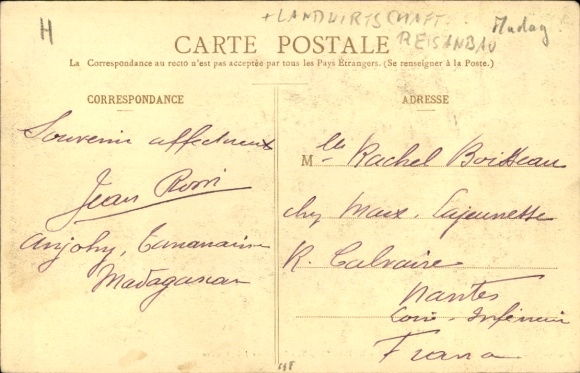 H
+ LANDWIRTSCHAFT
REISANBAU
Madag.
CARTE POSTALE
La Correspondance au recto n'est pas acceptée par tous les Pays Étrangers. (Se renseigner à la Poste.)
CORRESPONDANCE
Souvenir affectueux
Jean
Tananarive
Madagascar
ADRESSE
Mlle Rachel Boisseau
chez Max. Lajeunesse
R. Calvaire
Nantes
Loire-Inférieure
France